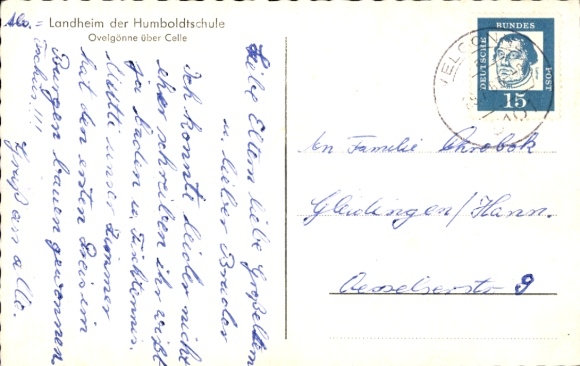 Landheim der Humboldtschule
Ovelgönne über Celle
Liebe Eltern liebe Großeltern
u. lieber Bruder
Ich konnte leider nicht
eher schreiben ihr wißt
ja baden u. Tischtennis.
unser Zimmer
hat den ersten Preis im
Burgen bauen gewonnen
Tschüs!!!
Gruß an alle
DEUTSCHE BUNDESPOST
15
An Familie Chrobok
Gleidingen/Hann.
Oesselserstr 9